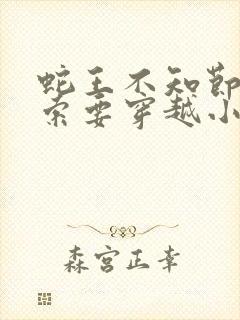 蛇王不知节
索要穿越小
森宫正幸